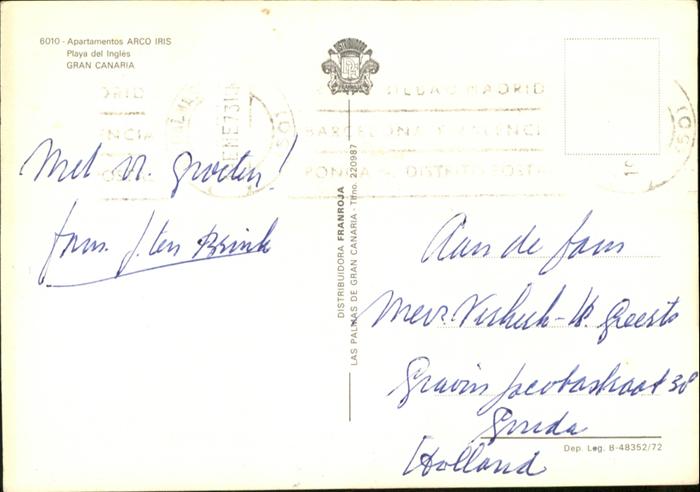 6010 - Apartamentos ARCO IRIS
Playa del Inglés
GRAN CANARIA
FRANROJA
BILBAO MADRID
BARCELONA Y VALENCIA
PONGA DISTRITO POSTAL
ENE 73
Met vr. groeten!
fam. J. ten Brink
DISTRIBUIDORA FRANROJA
LAS PALMAS DE GRAN CANARIA - Tlfno. 220987
Aan de fam
Mevr.
Gravin Jacobastraat 38
Gouda
Holland
Dep. Leg. B-48352/72